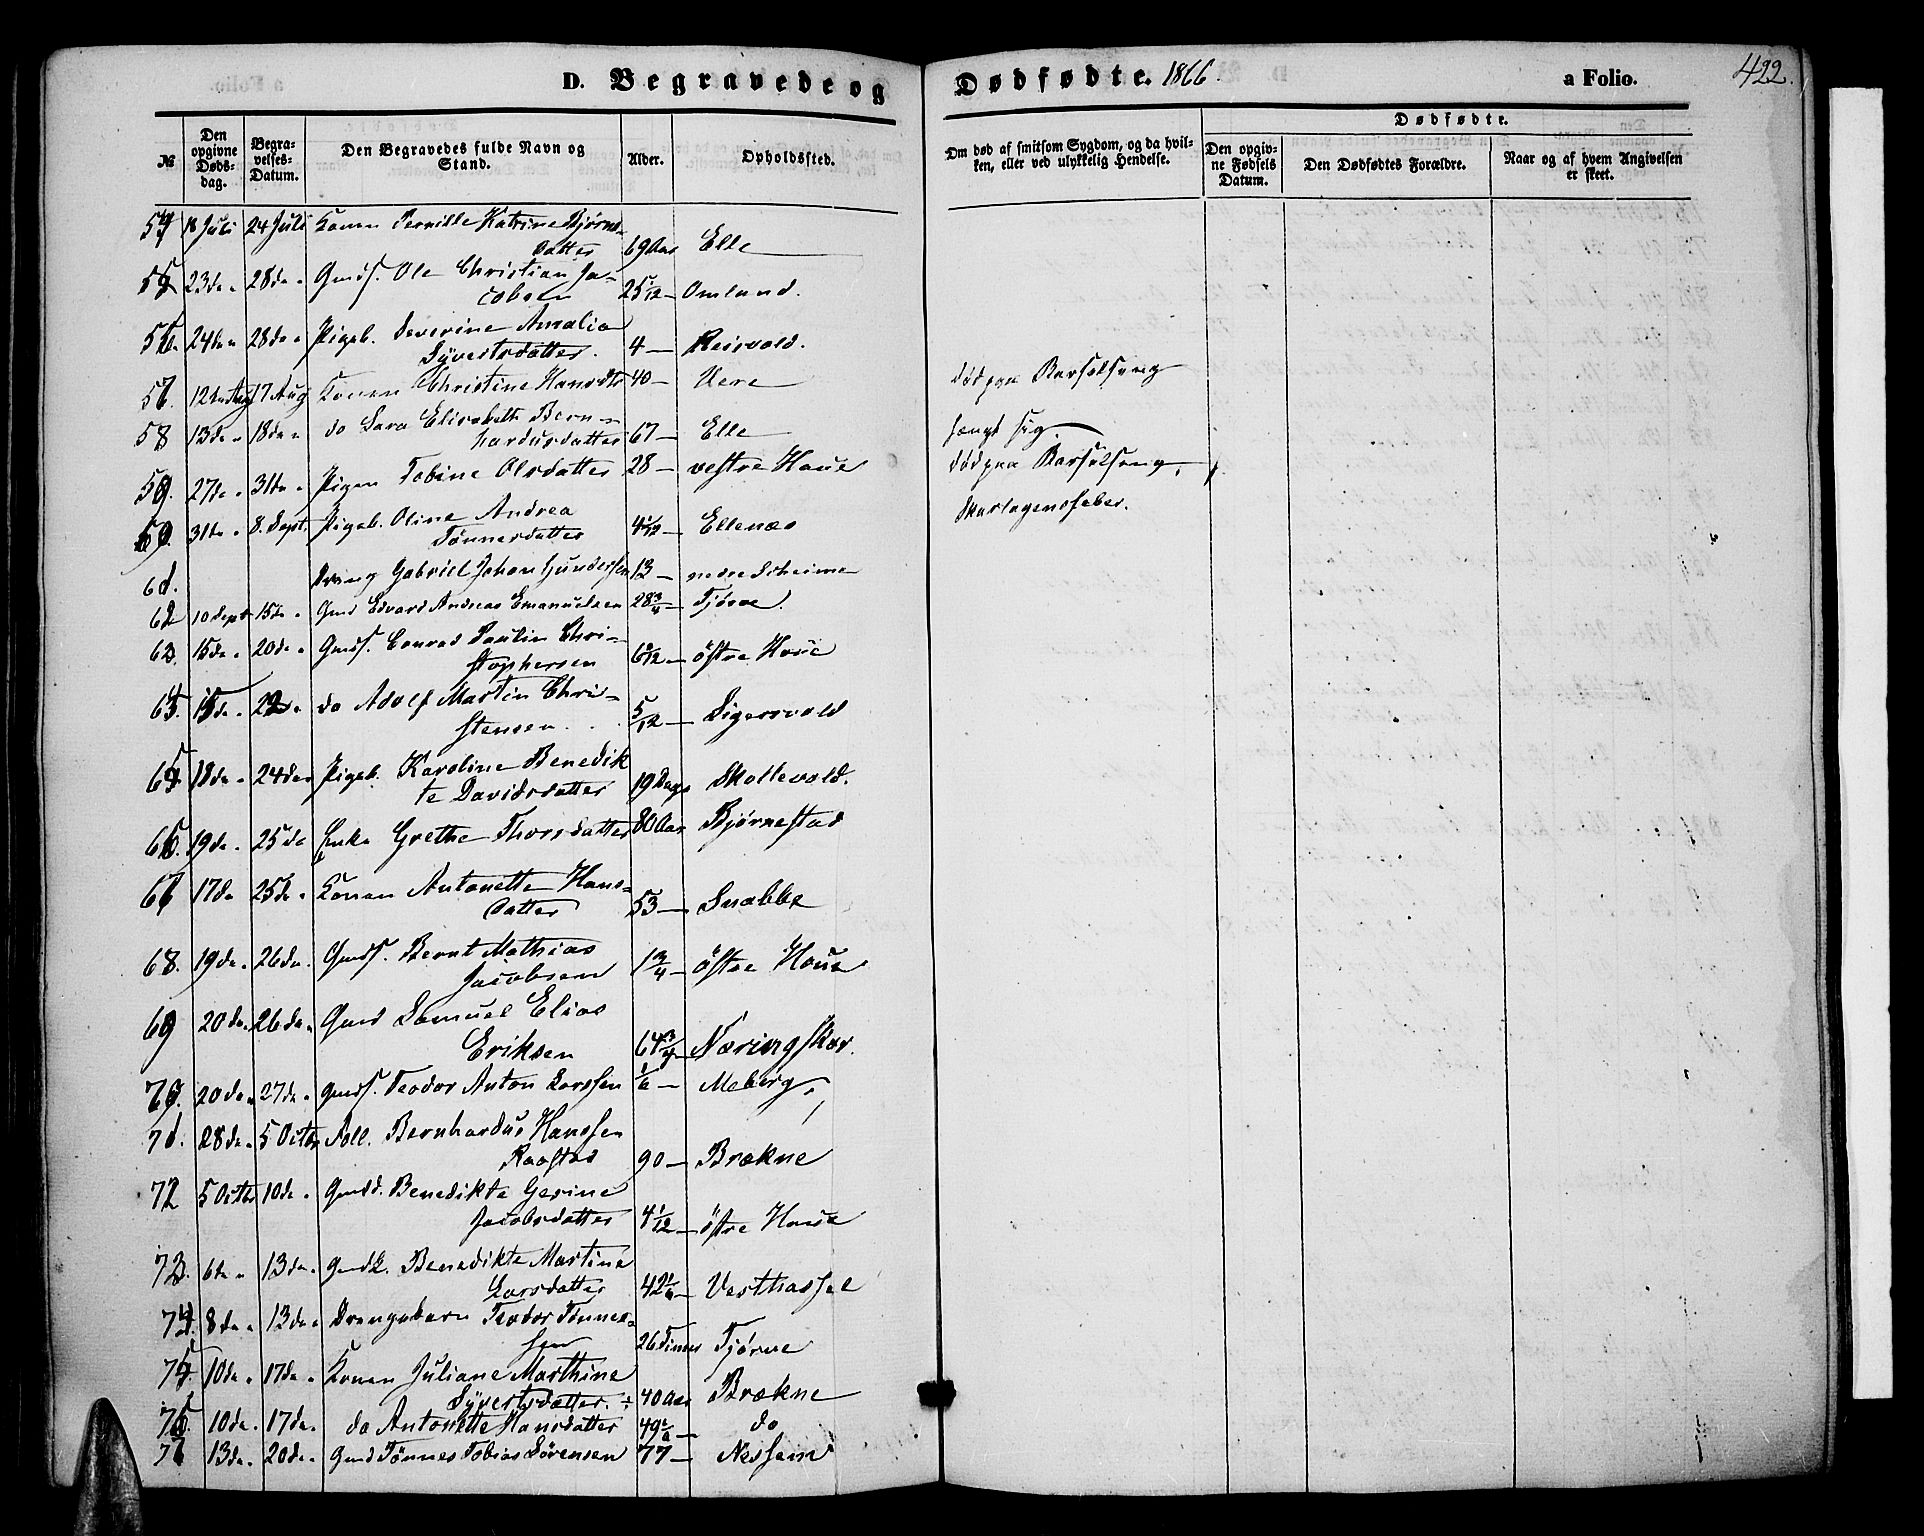 D. Begravede og Dødfødte. 1866. a Folio. 422.
№ Den opgivne Dødsdag. Begravelses-Datum. Den Begravedes fulde Navn og Stand. Alder. Opholdssted. Om død af smitsom Sygdom, og da hvilken, eller ved ulykkelig Hendelse. Dødfødte.
Den opgivne Fødsels Datum. Den Dødfødtes Forældre. Naar og af hvem Angivelsen er skeet.
18 Juli 24 Juli Konen Pernille Katrine Bjørns-
datter 69 Aar Elle
23de 28de Gmds. Ole Christian Ja-
cobsen Omland.
24de 28de Pigeb. Severine Amalia
Syvertsdatter. 4 — Reisvold.
12te Aug 17 Aug Konen Christine Hansdtr 40 — Uere død paa Barselseng
58 13de 18de do Sara Elisabeth Bern-
hardusdatter 67 — Elle hængt sig
59. 27de 31te Pigen Tobine Olsdatter 28 — vestre Haue død paa Barselseng.
60. 31te 8. Sept. Pigeb. Oline Andrea
Tønnesdatter 4 1/12 — Ellenæs Skarlagensfeber.
61. Dreng Gabriel Johan Gundersen 13 — nedre Scheime
62 10 Sept 15de Gmd Edvard Andreas Emanuelsen 28 3/4 — Tjørve.
63. 15de 20de Gmds. Conrad Paulin Chri-
stophersen østre Haue
15de 22de do Adolf Martin Chri-
stensen. 5/12 — Sigersvold
18de 24de Pigeb. Karoline Benedik
te Davidsdatter 19 Dage Skollevold.
66. 19de 25de Enke Grethe Thorsdatter 80 Aar Bjørnestad
67 17de 25de Konen Antonette Hans-
datter 53 — Snabbe
68. 19de 26de Gmds. Bernt Mathias
Jacobsen 1 3/4 — østre Haue
69 20de 26de Gmd Samuel Elias
Eriksen 64 3/4 — Næringskar.
70. 20de 27de Gmds. Teodor Anton Larssen 1/6 — Meberg
71. 28de 5 Octbr Fll. Bernhardus Hanssen
Raastad 90 — Brækne
72 5 Octbr 10de Gmdd. Benedikte Gerine
Jacobsdatter 4 1/12 — østre Haue
73. 6te 13de Gmdk. Benedikte Martine
Larsdatter 42 1/6 — Vesthassel
74. 8de 13de Drengebarn Teodor Tønnes-
sen 26 Timer Tjørve
75. 10de 17de Konen Juliane Marthine
Syvertsdatter. 40 Aar Brækne
76. 10de 17de do Antonette Hansdatter do
77 13de 20de Gmd Tønnes Tobias Sørensen 77 — Nessem